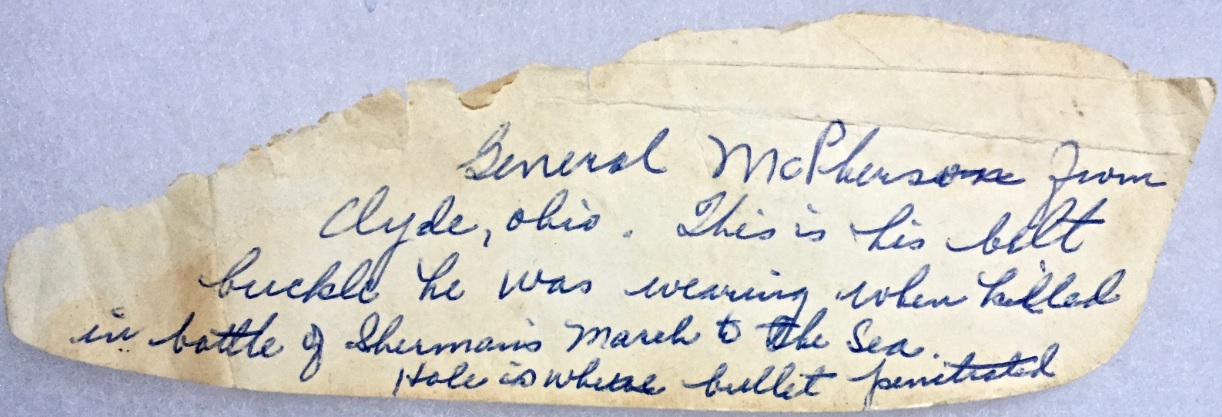 General McPherson from
Clyde, Ohio. This is his belt
buckle he was wearing when killed
in battle of Sherman's March to the Sea.
Hole is where bullet penitrated